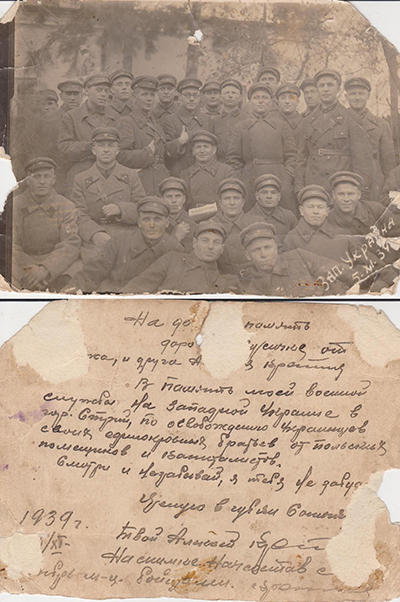 Зап. Украина
5.XI.39
На до память
доро от
ка, и друга А
В память моей военной
службы. На Западной Украине в
гор. Стрый, по освобождению Украинцев
своих единокровных братьев от польских
помещиков и капиталистов.
Смотри и незабывай, я тебя не забуду
Целую в губы
1939г.
/XI-
Твой Алексей
На снимке Начсостав с
м-ц. бойцами.